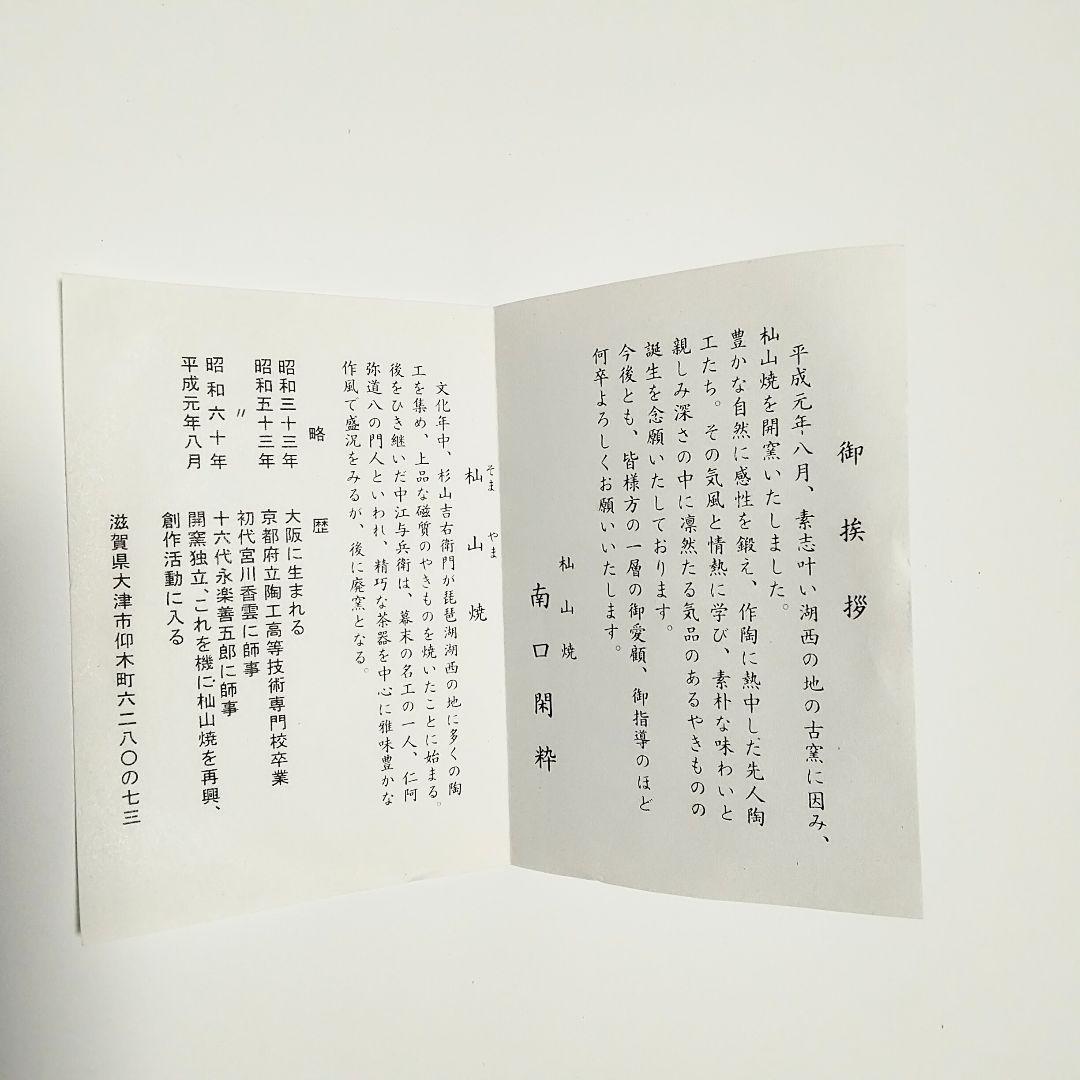 御挨拶
平成元年八月、素志叶い湖西の地の古窯に因み、
杣山焼を開窯いたしました。
豊かな自然に感性を鍛え、作陶に熱中した先人陶
工たち。その気風と情熱に学び、素朴な味わいと
親しみ深さの中に凛然たる気品のあるやきものの
誕生を念願いたしております。
今後とも、皆様方の一層の御愛顧、御指導のほど
何卒よろしくお願いいたします。
杣山焼
南口閑粋
杣山焼
そまやま
文化年中、杉山吉右衛門が琵琶湖湖西の地に多くの陶
工を集め、上品な磁質のやきものを焼いたことに始まる。
後をひき継いだ中江与兵衛は、幕末の名工の一人、仁阿
弥道八の門人といわれ、精巧な茶器を中心に雅味豊かな
作風で盛況をみるが、後に廃窯となる。
略歴
昭和三十三年 大阪に生まれる
昭和五十三年 京都府立陶工高等技術専門校卒業
〃 初代宮川香雲に師事
昭和六十年 十六代永楽善五郎に師事
平成元年八月 開窯独立、これを機に杣山焼を再興、
創作活動に入る
滋賀県大津市仰木町六二八〇の七三